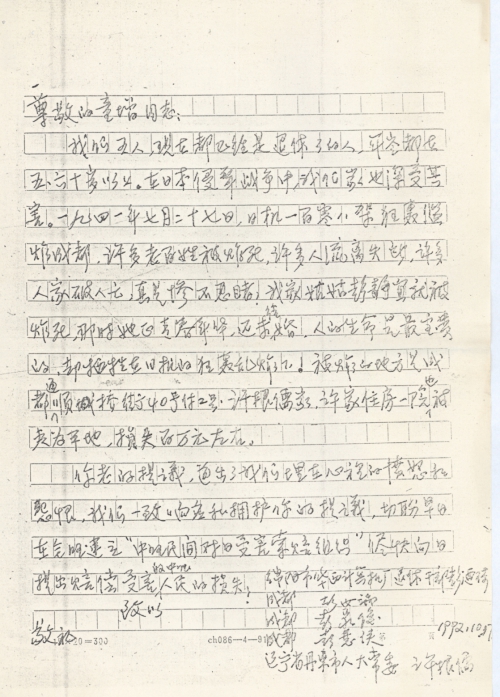 尊敬的童增同志:
我们五人,现在都已经是退休了的人,年岁都在
五、六十岁以上。在日本侵华战争中,我们家也深受其
害。一九四一年七月二十七日,日机一百零八架狂轰滥
炸成都,许多老百姓被炸死,许多人流离失所,许多
人家破人亡,真是惨不忍睹!我家姑姑彭静宜就被
炸死,那时她正青春年华,还未结婚,人的生命是最宝贵
的,却牺牲在日机的狂轰乱炸下!被炸的地方是成
都顺城桥街40号付2号。许振儒家,许家住房一院也被
炸为平地,损失百万元左右。
你老的提议,道出了我们埋在心里的愤怒和
怨恨,我们一致向应和拥护你的提议,切盼早日
在全国建立"中国民间对日受害索赔组织"尽快向日
提出赔偿受害的中国人民的损失!
致以
敬礼
绵阳市 计算机厂退休干部
成都 彭
成都 彭
成都 彭
辽宁省丹东市人大常委 许振儒
1992.10.
20=300
ch086—4—91